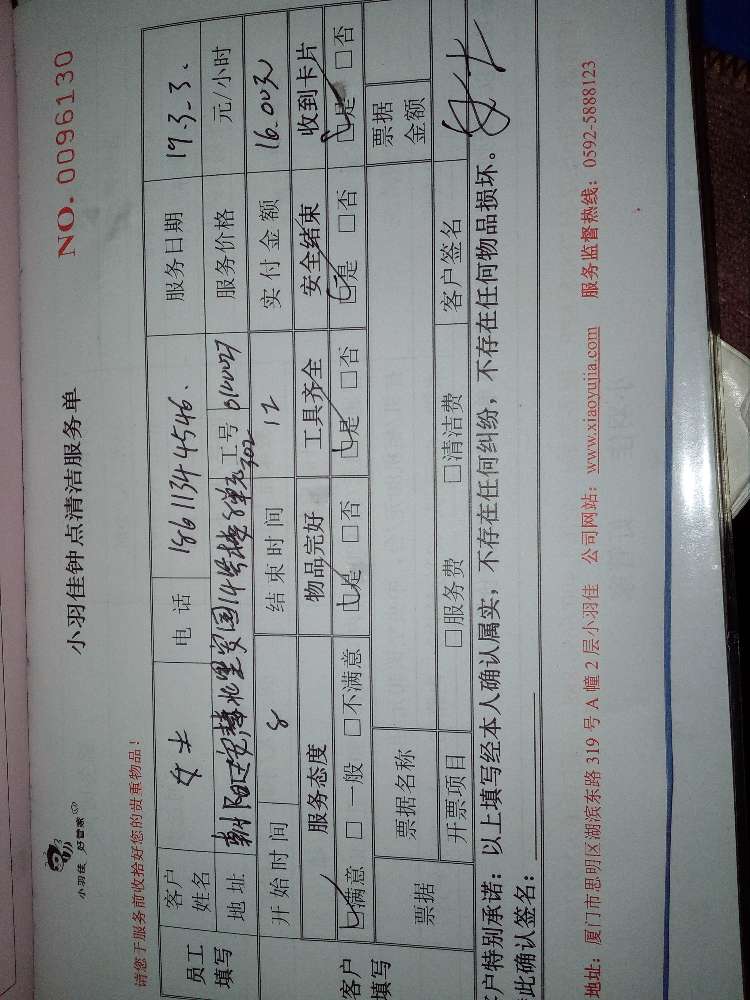 小羽佳 好管家
小羽佳钟点清洁服务单
NO. 0096130
请您于服务前收拾好您的贵重物品!
员工填写
客户姓名 女士 电话 18611344546. 服务日期 19.3.3.
地址 朝阳区安慧北里安园14号楼8单元702 工号 010027 服务价格 元/小时
开始时间 8 结束时间 12 实付金额 16.00元
客户填写
服务态度 物品完好 工具齐全 安全结束 收到卡片
□满意 □一般 □不满意 □是 □否 □是 □否 □是 □否 □是 □否
票据 票据名称 票据金额
开票项目 □服务费 □清洁费 客户签名 女士
客户特别承诺:以上填写经本人确认属实,不存在任何纠纷,不存在任何物品损坏。
此确认签名:
地址:厦门市思明区湖滨东路319号A幢2层小羽佳 公司网站:www.xiaoyujia.com 服务监督热线:0592-5888123